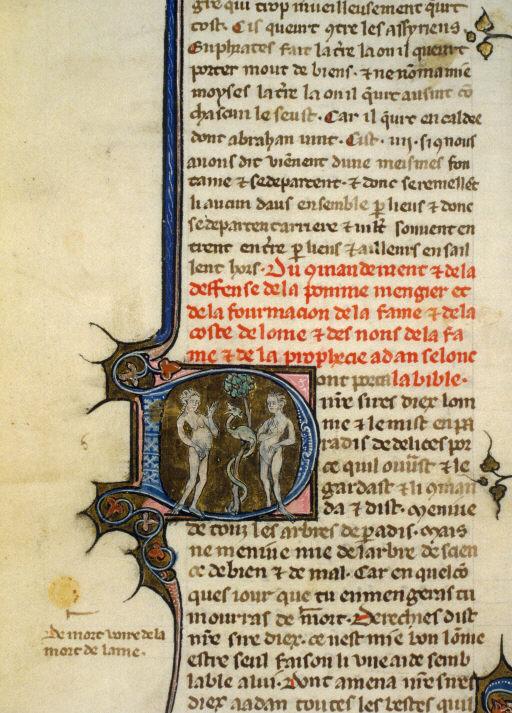 gre qui trop merueilleusement q̃urt
tost. Cis queurt ɔtre les assyriens
Euphrates fait la tr̃e la on il queurt
porter mout de biens. ⁊ ne nõma mie
moyses la tr̃e la on il q̃urt ausint cõ
chascun le seust. Car il q̃urt en caldee
dont abrahan uint. Cist .iiij. si q̃ nous
auons dit uiẽnent dune meismes fon
taine ⁊ se departent. ⁊ donc se remellẽt
li aucun daus ensemble ꝑ lieus ⁊ donc
se departent arriere ⁊ souuent en
trent en tr̃e ꝑ lieus ⁊ ailleurs en sail
lent hors. Du ɔmandement ⁊ de la
deffense de la pomme mengier et
de la fourmacion de la fame ⁊ de la
coste de lome ⁊ des nons de la fa
me ⁊ de la prophecie adan selonc
la bible.
Dont nr̃e sires diex lom
me ⁊ le mist en pa
radis de delices por
ce quil ouurast ⁊ le
gardast ⁊ li ɔman
da ⁊ dist. Meniue
de touz les arbres de ꝑadis. Mais
ne meniue mie de larbre de scien
ce de bien ⁊ de mal. Car en quelcõ
ques iour que tu en mengeras tu
mourras de mort. Derechies dist
nr̃e sire diex. ce nest mie bon lõme
estre seul faison li une aide semb
lable a lui. Dont amena nr̃e sires
diex a adan toutes les bestes qui
De mort uoire de la
mort de lame.